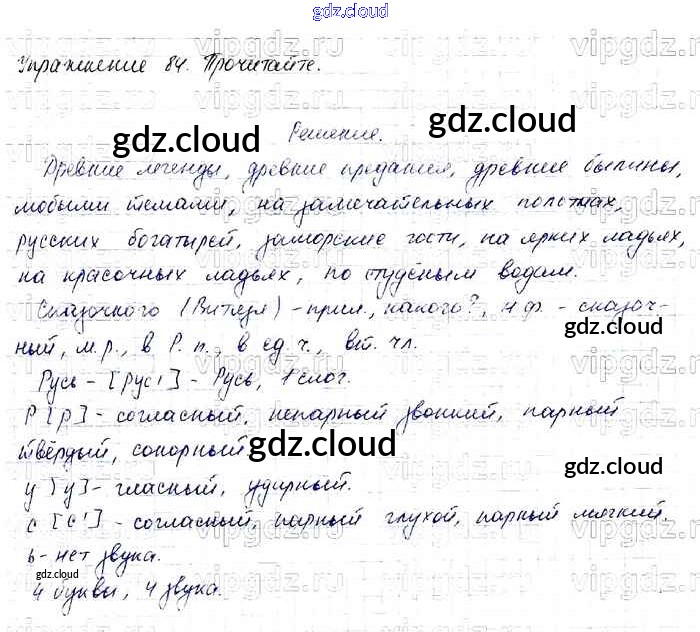 gdz.cloud
Упражнение 84. Прочитайте.
Решение.
Древние легенды, древние предания, древние былины,
любыми темами, на замечательных полотнах,
русских богатырей, заморские гости, на ярких ладьях,
на красочных ладьях, по студёным водам.
Сказочного (Витязя) - прил., какого?, н.ф. - сказоч-
ный, м.р., в Р.п., в ед.ч., вт. чл.
Русь - [рус'] - Русь, 1 слог.
Р [р] - согласный, непарный звонкий, парный
твёрдый, сонорный
у [у] - гласный, ударный.
с [с'] - согласный, парный глухой, парный мягкий.
ь - нет звука.
4 буквы, 4 звука.
gdz.cloud
gdz.cloud
gdz.cloud
gdz.cloud
gdz.cloud
gdz.cloud